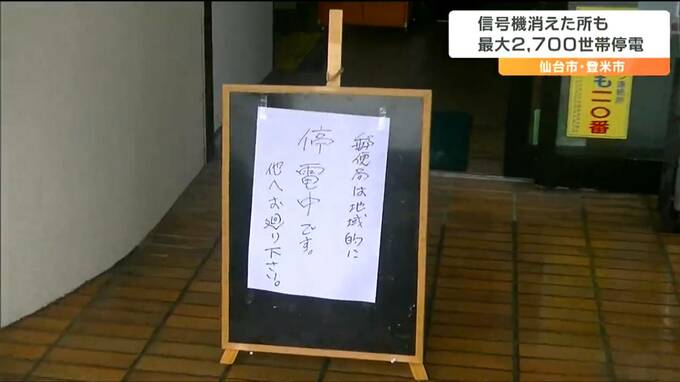 信号機消えた所も
最大2,700世帯停電
仙台市・登米市
郵便局は地域的に
停電中です。
他へお廻り下さい。
連絡所
も一一〇番